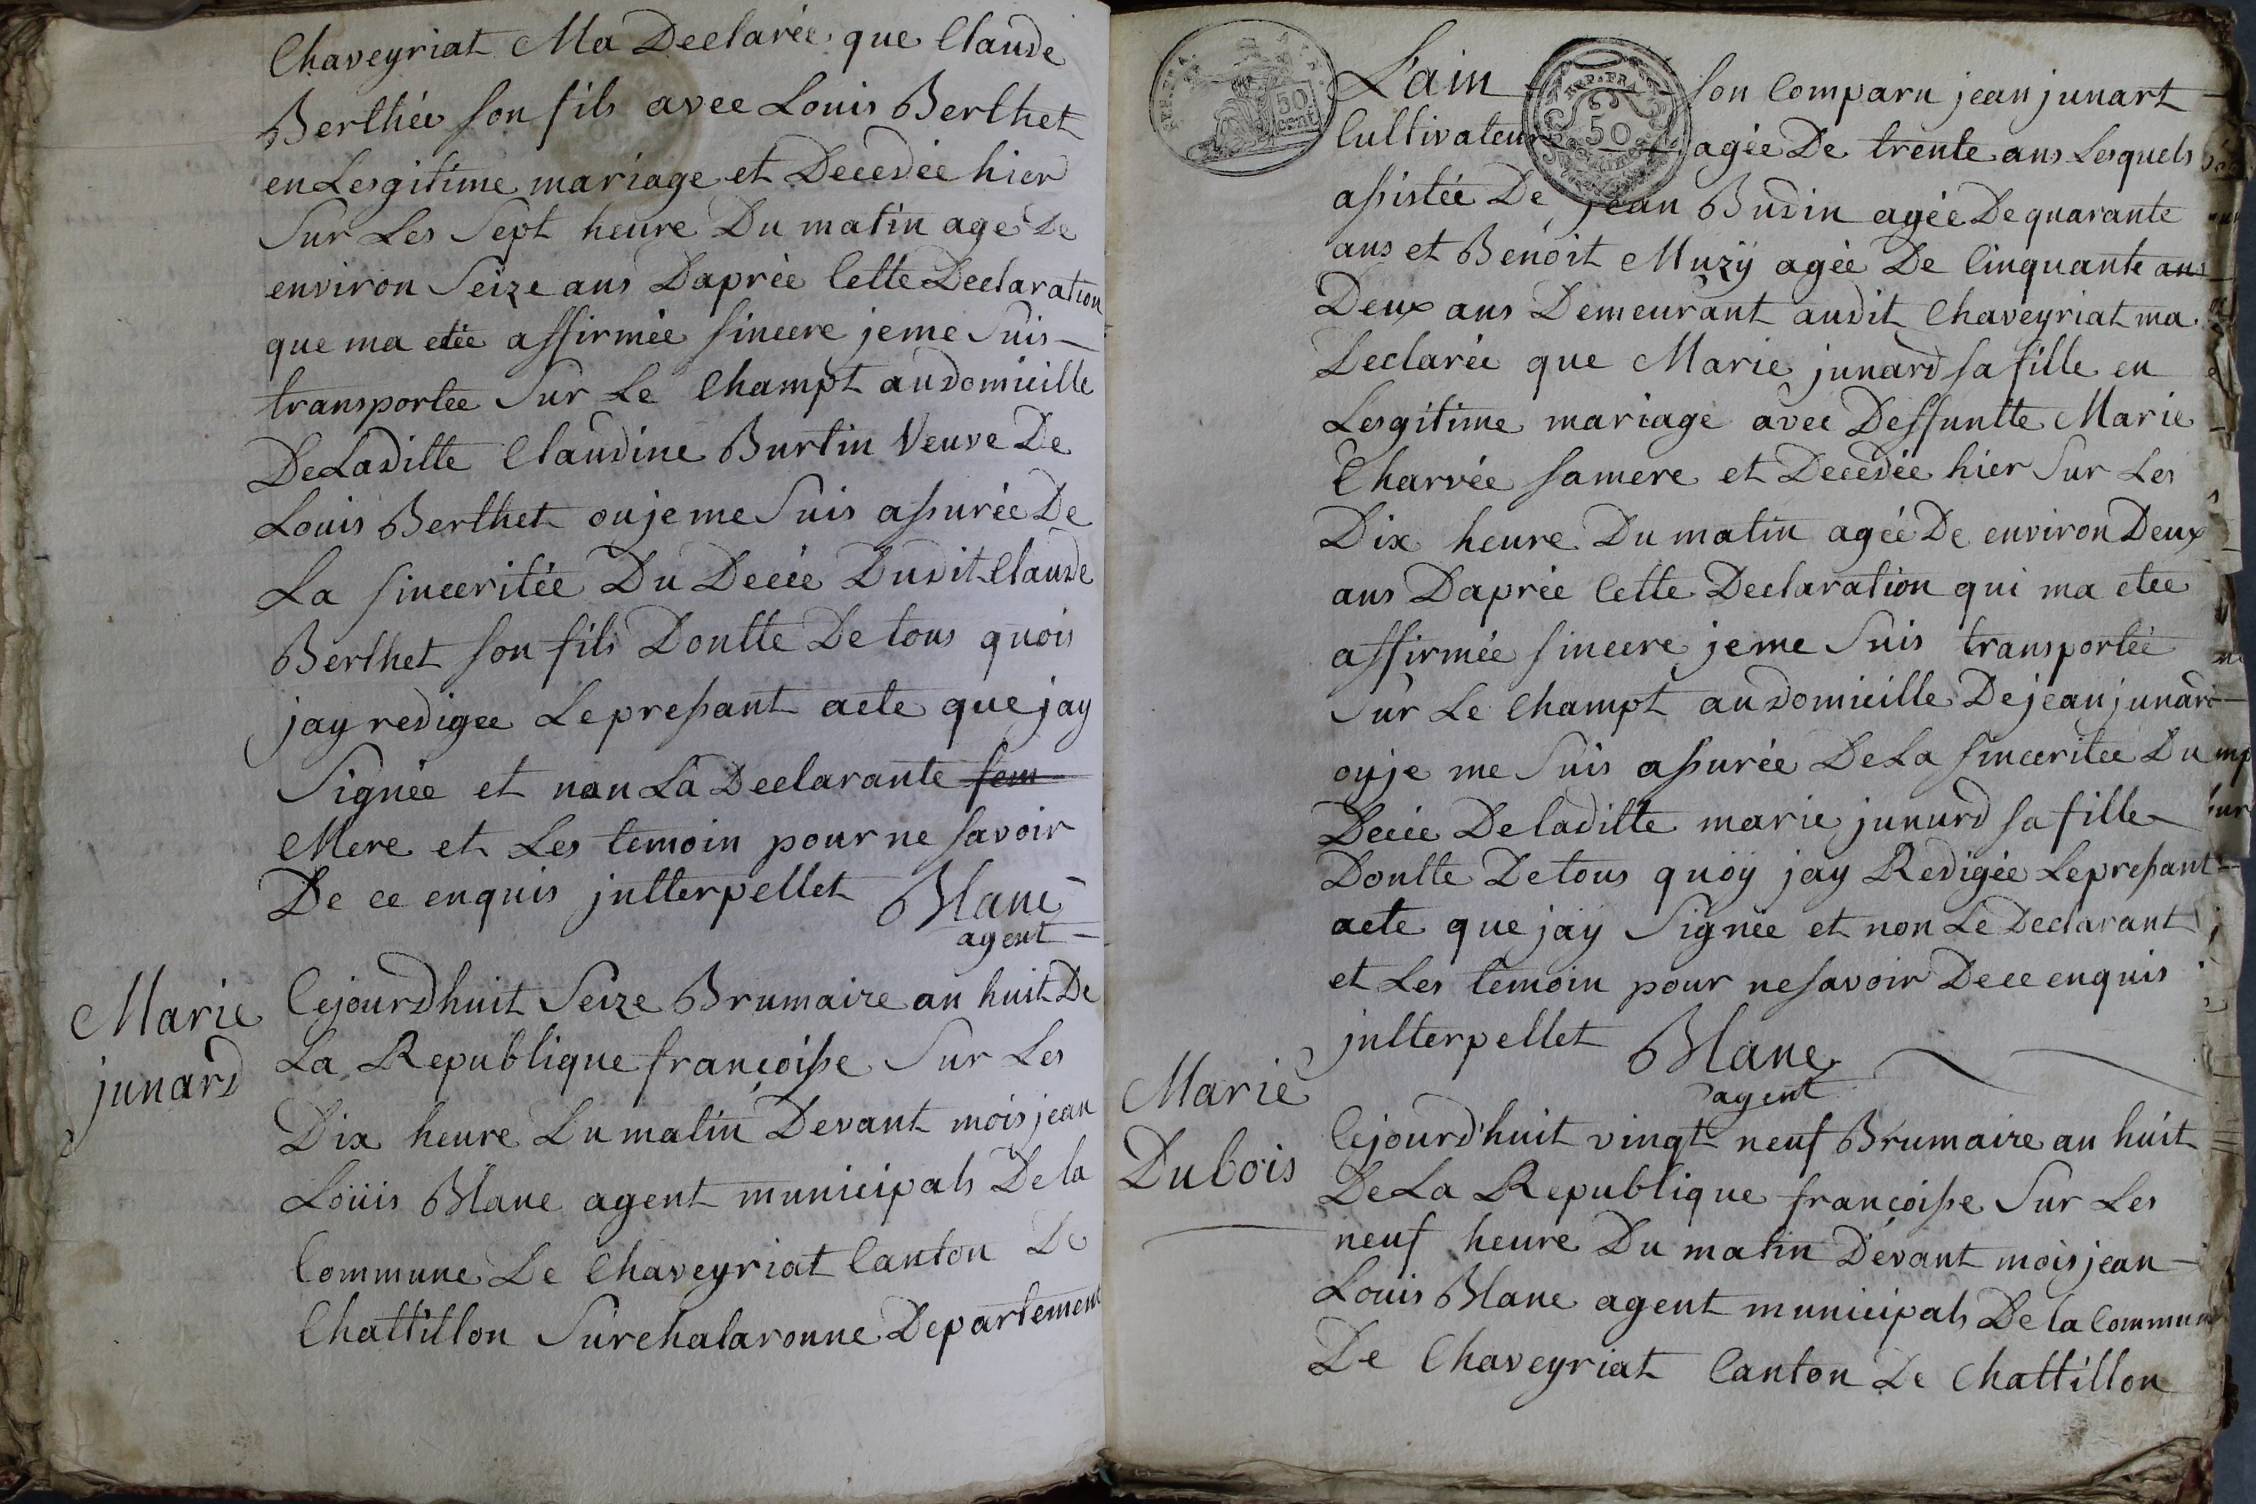 Chaveyriat Ma Declarée que Claude
Berthée son fils avec Louis Berthet
en Lesgitime mariage et Decedée hier
Sur Les Sept heure Du matin age De
environ Seize ans Daprée Cette Declaration
que ma etée affirmée sincere je me Suis
transportée Sur Le Champt au domicille
De Laditte Claudine Burtin Veuve De
Louis Berthet ou je me Suis assurée De
La sinceritée Du Decée Dudit Claude
Berthet son fils Dontte De tous quois
jay redigee Le pressant acte que jay
Signée et non La Declarante
Mere et Les temoin pour ne savoir
De ce enquis jntterpellet Blanc
agent
Marie
junard
Cejourdhuit Seize Brumaire an huit De
La Republique françoisse Sur Les
Dix heure Du matin Devant mois jean
Loüis Blanc agent municipals De la
Commune De Chaveyriat Canton De
Chattillon Surchalaronne Departement
REP. FRA.
50
cent
50
L'ain son Comparu jean junart
Cultivateur agée De trente ans Lesquels
assistée De jean Budin agée De quarante
ans et Benoit Muzÿ agée De Cinquante ans
Deux ans Demeurant audit Chaveyriat ma
Declarée que Marie junard sa fille en
Lesgitime mariage avec Deffuntte Marie
Charvée sa mere et Decedée hier Sur Les
Dix heure Du matin agée De environ Deux
ans Daprée Cette Declaration qui ma etee
affirmée sincere je me Suis transportée
Sur Le Champt au domicille De jean junard
ou je me Suis assurée De La sinceritee Du
Decée De laditte marie junurd sa fille
Dontte De tous quoÿ jay Redigée Le pressant
acte que jaÿ Signée et non Le Declarant
et Les temoin pour ne savoir De ce enquis
jntterpellet Blanc
agent
Marie
Dubois
Cejourd'huit vingt neuf Brumaire an huit
De La Republique françoisse Sur Les
neuf heure Du matin Devant mois jean
Louis Blanc agent municipals De la Commune
De Chaveyriat Canton De Chattillon